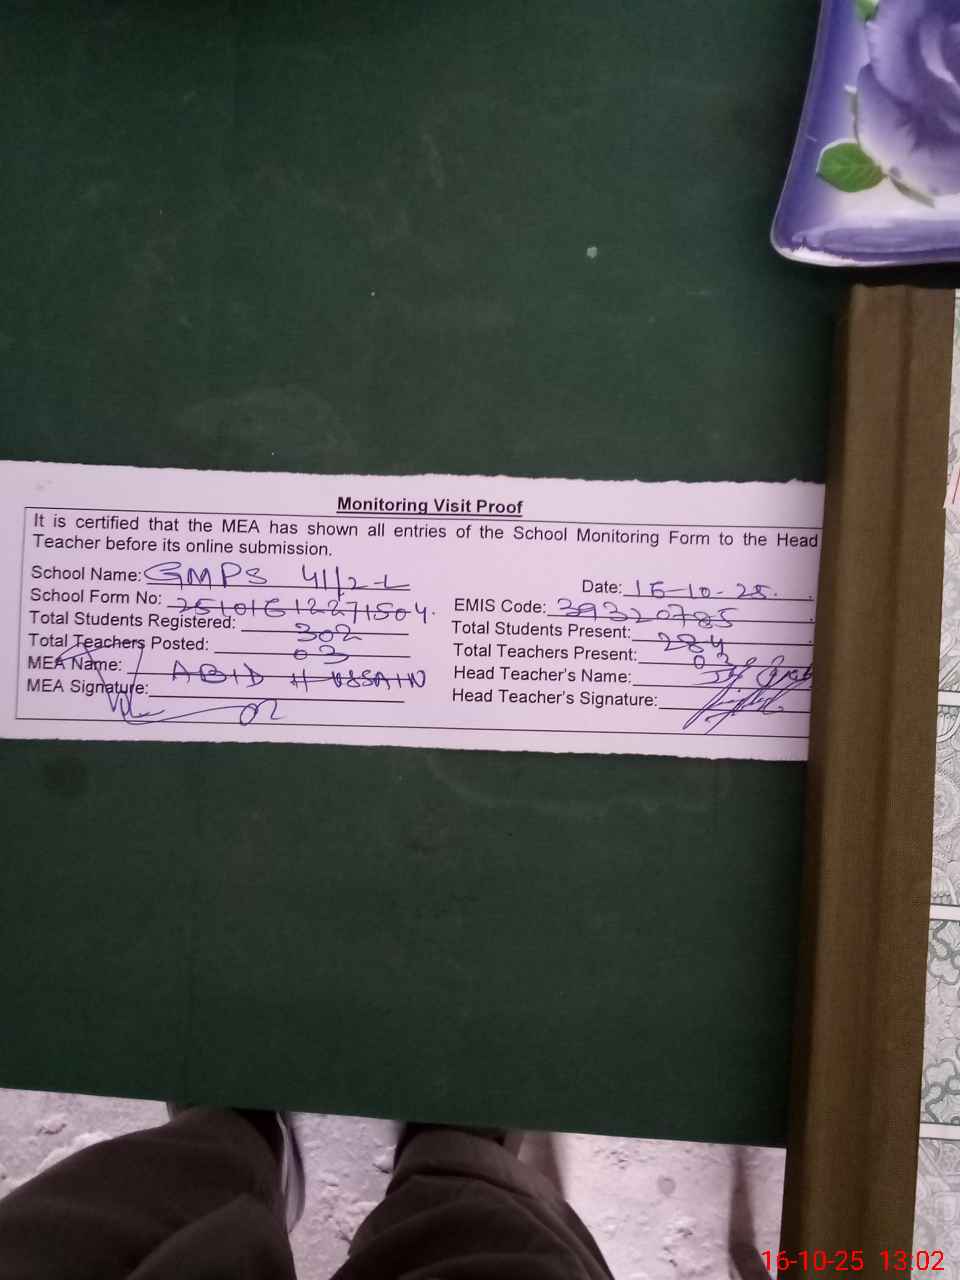 Monitoring Visit Proof
It is certified that the MEA has shown all entries of the School Monitoring Form to the Head
Teacher before its online submission.
School Name: GMPS 41/2-L Date: 16-10-25.
School Form No: 25101612271504. EMIS Code: 39320785
Total Students Registered: 302 Total Students Present: 284
Total Teachers Posted: 03 Total Teachers Present: 03
MEA Name: ABID HUSSAIN Head Teacher's Name:
MEA Signature: Head Teacher's Signature:
16-10-25 13:02